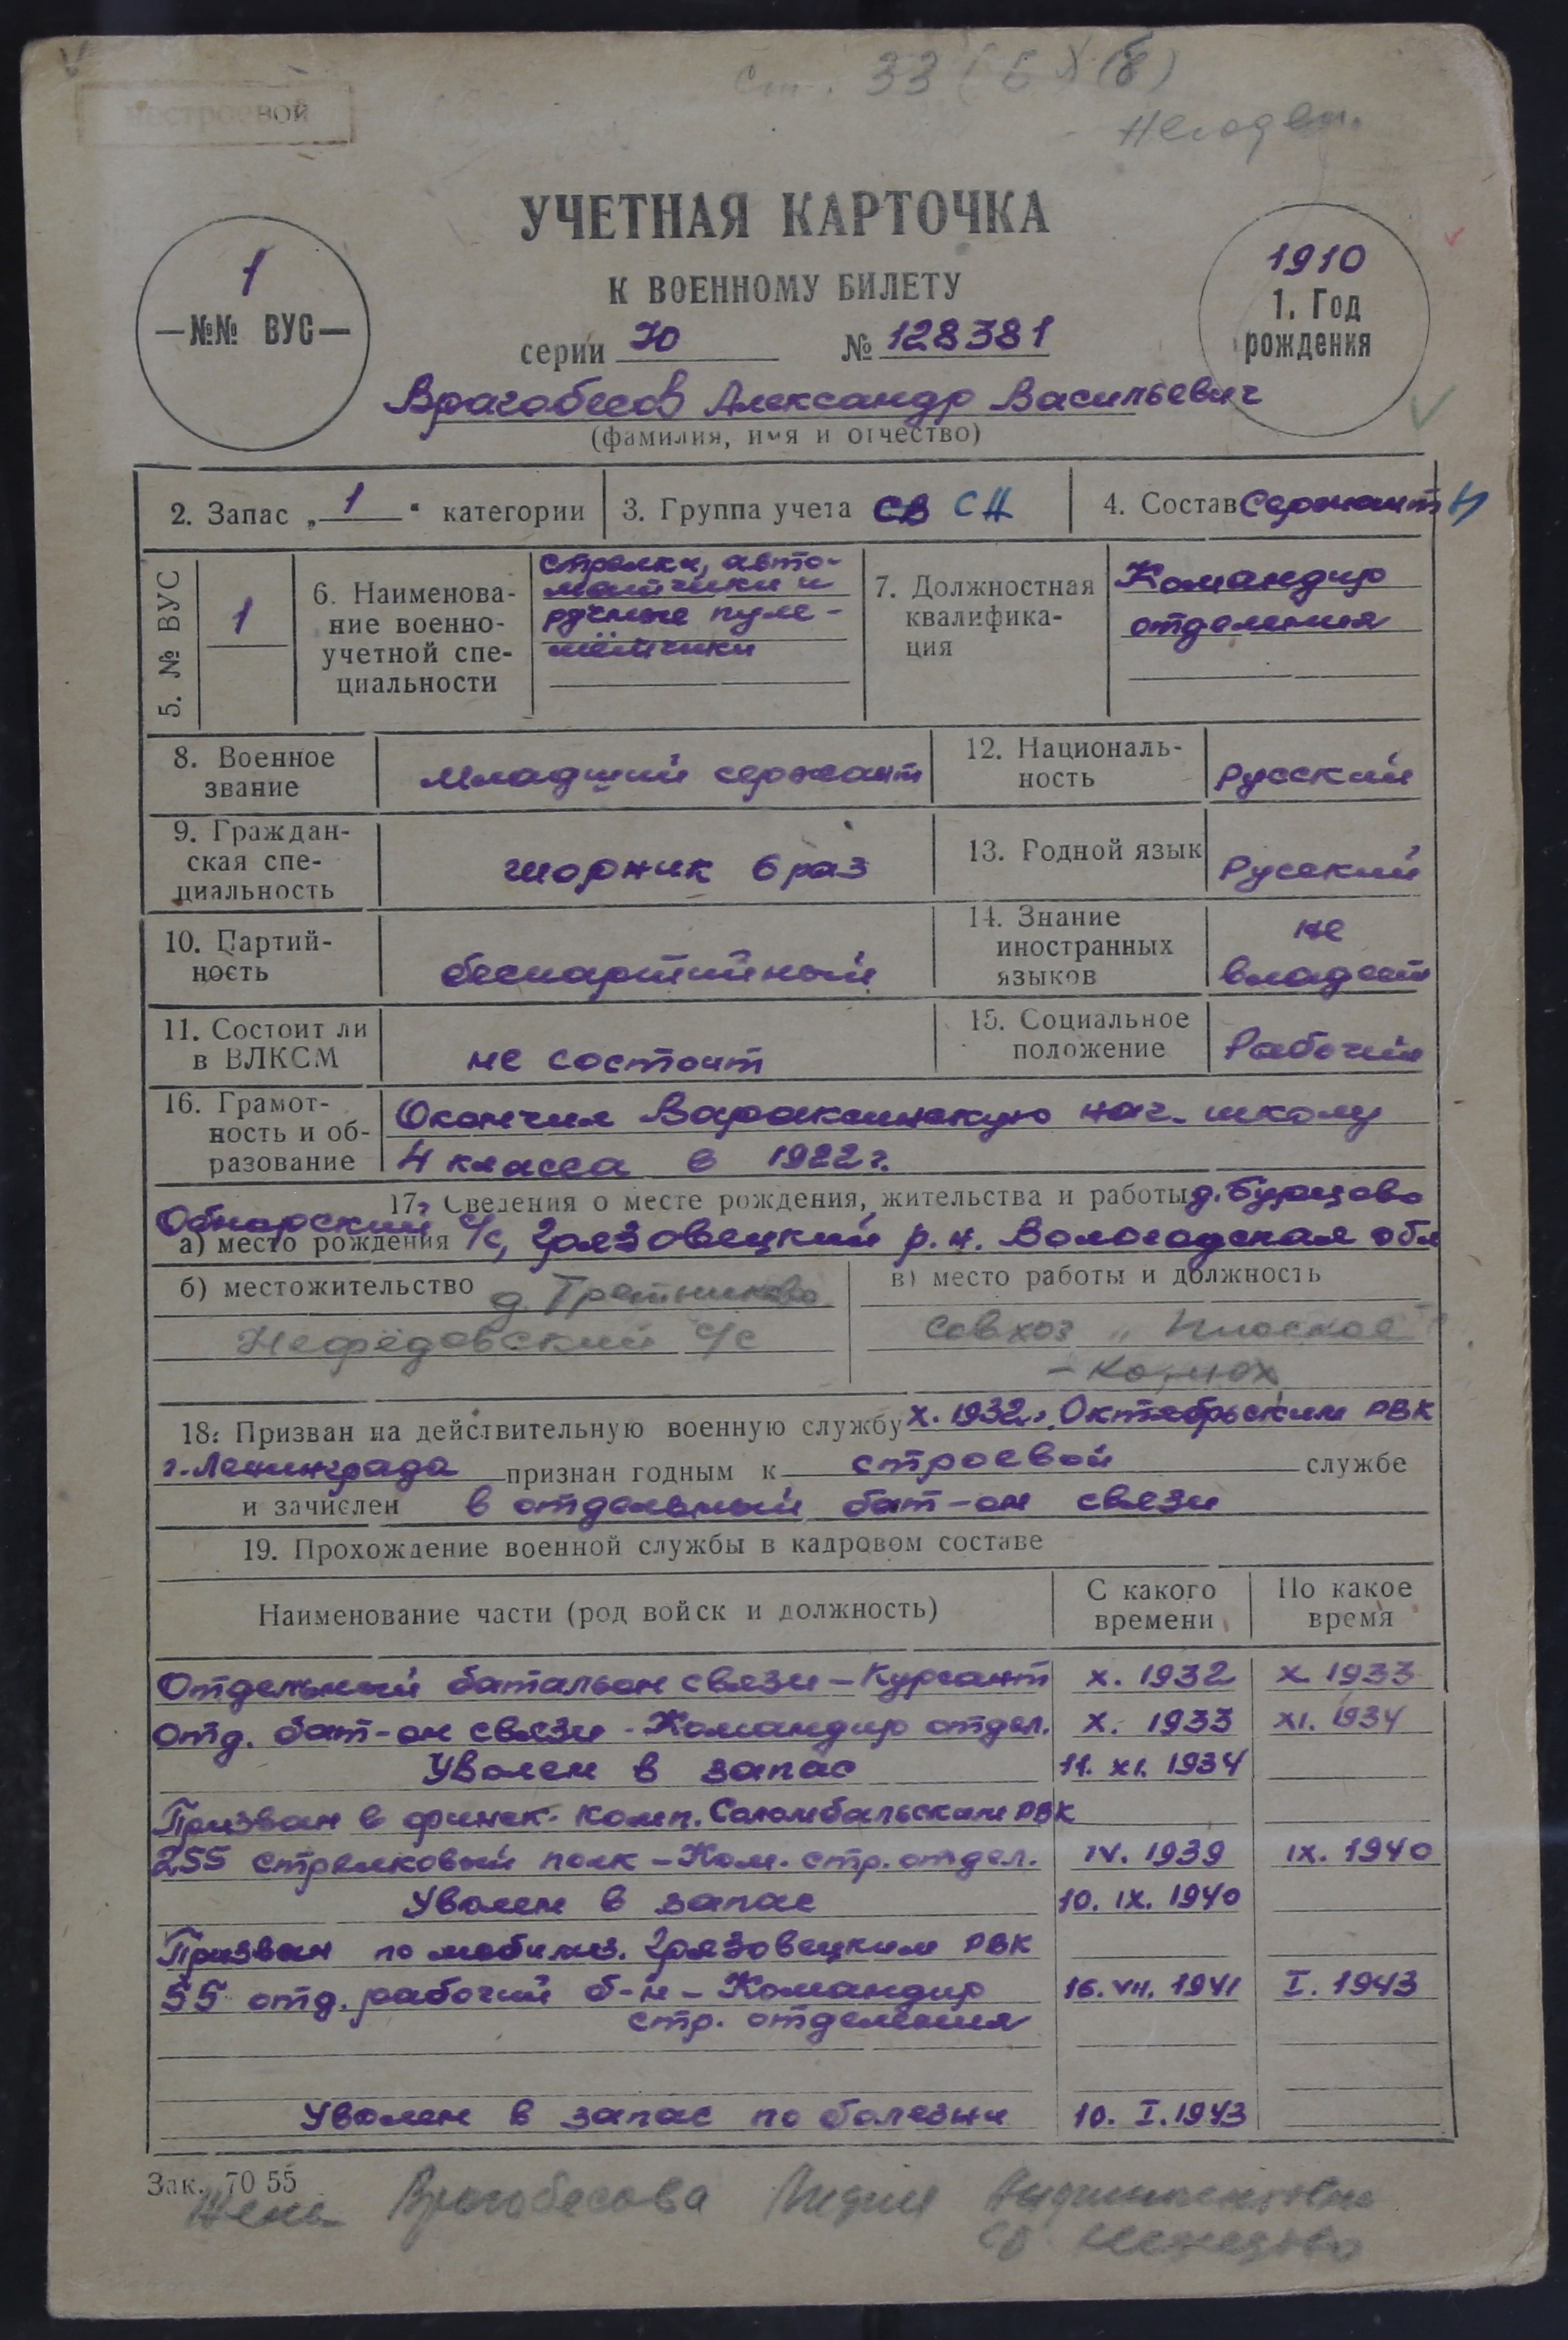 Ст. 33
нестроевой
Негоден.
УЧЕТНАЯ КАРТОЧКА
К ВОЕННОМУ БИЛЕТУ
1
—№№ ВУС—
1910
1. Год
рождения
серии Ю № 128381
Врагобесов Александр Васильевич
(фамилия, имя и отчество)
2. Запас „1“ категории
3. Группа учета СВ СН
4. Состав Сержант
5. № ВУС
1
6. Наименова-
ние военно-
учетной спе-
циальности
стрелки, авто-
матчики и
ручные пуле-
мётчики
7. Должностная
квалифика-
ция
Командир
отделения
8. Военное
звание
младший сержант
12. Националь-
ность
Русский
9. Граждан-
ская спе-
циальность
шорник 6 раз
13. Родной язык
Русский
10. Партий-
ность
беспартийный
14. Знание
иностранных
языков
не
владеет
11. Состоит ли
в ВЛКСМ
не состоит
15. Социальное
положение
Рабочий
16. Грамот-
ность и об-
разование
Окончил Варакинскую нач. школу
4 класса в 1922 г.
17. Сведения о месте рождения, жительства и работы д. Бурцево
Обнорский с/с, Грязовецкий р.н. Вологодская обл
а) место рождения
б) местожительство
д. Третниково
Нефёдовский с/с
в) место работы и должность
совхоз „Плоское“
– конюх
18. Призван на действительную военную службу X. 1932 г. Октябрьским РВК
г. Ленинграда признан годным к строевой службе
и зачислен в отдельный бат-он связи
19. Прохождение военной службы в кадровом составе
Наименование части (род войск и должность)
С какого
времени
По какое
время
Отдельный батальон связи – Курсант X. 1932 X 1933
Отд. бат-он связи - Командир отдел. X. 1933 XI. 1934
Уволен в запас 11. XI. 1934
Призван в финск. комп. Соломбальским РВК
255 стрелковый полк – Ком. стр. отдел. IV. 1939 IX. 1940
Уволен в запас 10. IX. 1940
Призван по мобилиз. Грязовецким РВК
55 отд. рабочий б-н – Командир 16. VII. 1941 I. 1943
стр. отделения
Уволен в запас по болезни 10. I. 1943
Зак. 7055
Жена Врагобесова Лидия